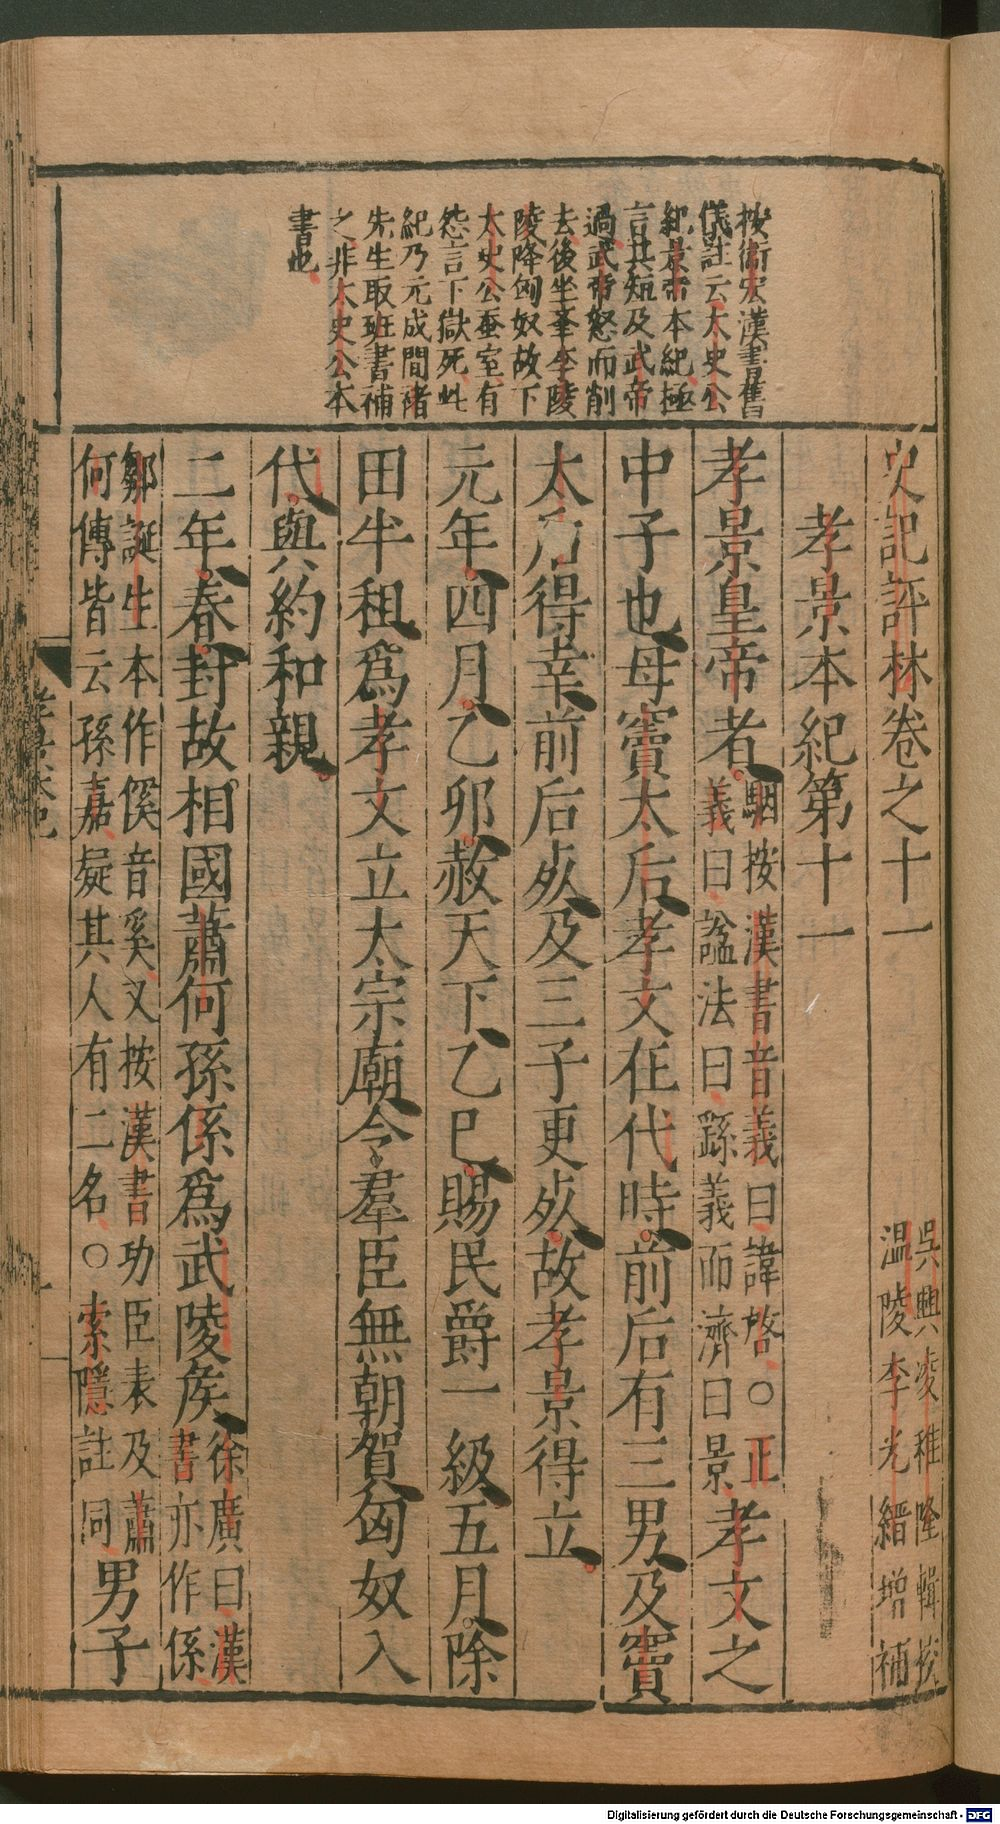 按衛宏漢書舊
儀註云太史公
紀景帝本紀極
言其短及武帝
過武帝怒而削
去後坐舉李陵
陵降匈奴故下
太史公蚕室有
怨言下獄死此
紀乃元成間褚
先生取班書補
之非太史公本
書也
史記評林卷之十一
吳興凌稚隆輯校
溫陵李光縉增補
孝景本紀第十一
孝景皇帝者
駰按漢書音義曰諱啓○正
義曰諡法曰繇義而濟曰景
孝文之
中子也母竇太后孝文在代時前后有三男及竇
太后得幸前后死及三子更死故孝景得立
元年四月乙卯赦天下乙巳賜民爵一級五月除
田半租爲孝文立太宗廟令羣臣無朝賀匈奴入
代與約和親
二年春封故相國蕭何孫係爲武陵矦
徐廣曰漢
書亦作係
鄒誕生本作傒音奚又按漢書功臣表及蕭
何傳皆云孫嘉疑其人有二名○索隱註同
男子
孝景本紀
一
Digitalisierung gefördert durch die Deutsche Forschungsgemeinschaft - DFG